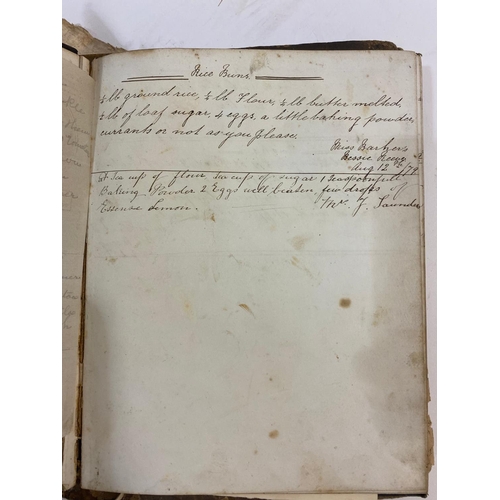 Rice Buns.
½ lb ground rice, ½ lb Flour, ¼ lb butter melted,
½ lb of loaf sugar, 4 eggs, a little baking powder,
currants or not as you please.
Miss Barker
Bessie
Aug 12th /79
Tea cup of flour Tea cup of sugar 1 Teaspoonful
Baking Powder 2 Eggs well beaten few drops of
Essence Lemon.
Mrs J. Saunders